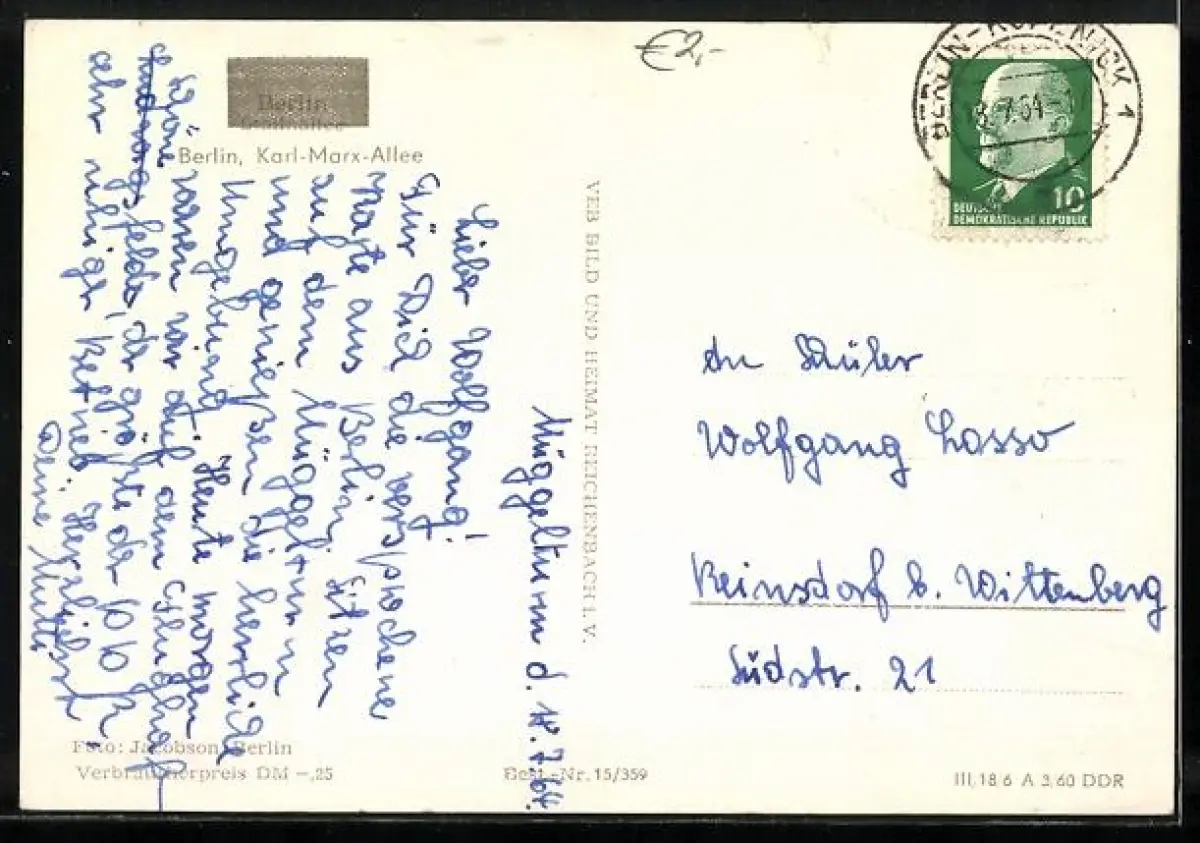 €2,-
BERLIN-KÖPENICK 1
.7.64-1
10
DEUTSCHE
DEMOKRATISCHE REPUBLIK
Berlin
Stalinallee
Berlin, Karl-Marx-Allee
Müggelturm d. 18.7.64.
Lieber Wolfgang!
Für Dich die versprochene
Karte aus Berlin. Sitzen
auf dem Müggelturm
und genießen die herrliche
Umgebung. Heute morgen
waren wir auf dem Flughaf
schönefeld, der größte der DDR,
sehr ruhiger Betrieb. Herzlichst
Deine Mutti
VEB BILD UND HEIMAT REICHENBACH I. V.
An Schüler
Wolfgang Lasso
Reinsdorf b. Wittenberg
Südstr. 21
Foto: Jacobson, Berlin
Verbraucherpreis DM -,25
Best.-Nr. 15/359
III,18,6 A 3,60 DDR